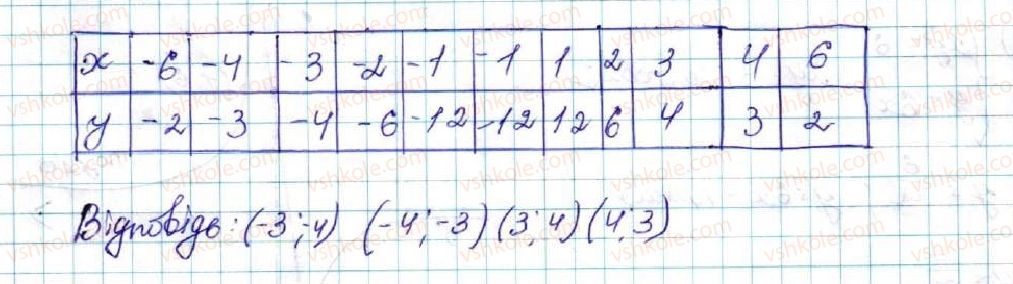 x -6 -4 -3 -2 -1 -1 1 2 3 4 6
y -2 -3 -4 -6 -12 -12 12 6 4 3 2
Відповідь: (-3;-4) (-4;-3) (3;4) (4;3)